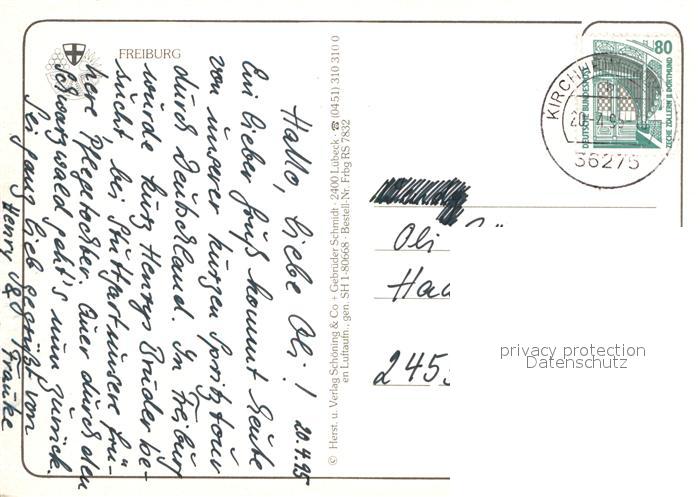 FREIBURG
20.4.95
Hallo, liebe Oli!
Ein lieber Gruß kommt heute
von unserer kurzen Spritztour
durch Deutschland. In Freiburg
wurde kurz Henrys Bruder be-
sucht bei Stuttgart unsere frü-
here Pflegetochter. Quer durch den
Schwarzwald geht's nun zurück.
Sei ganz lieb gegrüßt von
Henry & Frauke
© Herst. u. Verlag Schöning & Co + Gebrüder Schmidt · 2400 Lübeck ☎ (0451) 310 310 0
en Luftaufn., gen. SH 1-80668 · Bestell-Nr. Frbg RS 7832
80
DEUTSCHE BUNDESPOST
ZECHE ZOLLERN II, DORTMUND
KIRCHHEIM
36275
Oli
Had
245
privacy protection
Datenschutz